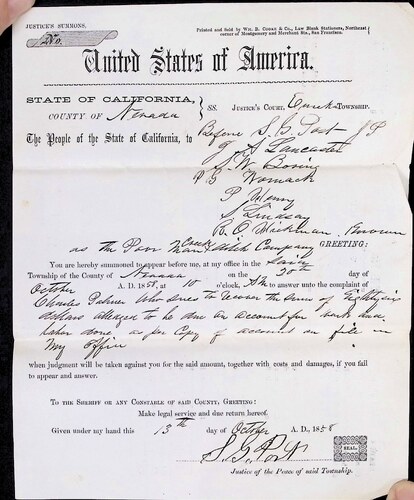 JUSTICE'S SUMMONS,
Printed and Sold by WM. B. COOKE & CO., Law Blank Stationers, Northeast
No.
corner of Montgomery and Merchant Sts., San Francisco.
United States of America.
STATE OF CALIFORNIA,
COUNTY OF Nevada
SS. JUSTICE'S COURT, Eureka TOWNSHIP.
The People of the State of California, to
Before S. G. Post J P
T. S. Lancaster
S. W. Boring
Womack
P. Henry
S. Lindsay
B. O. Hickman,
as the Poor Man Creek Ditch Company GREETING:
You are hereby summoned to appear before me, at my office in the said
Township of the County of Nevada on the 20th day of
October A. D. 1858, at 10 o'clock, AM to answer unto the complaint of
Charles Palmer Who sues to recover the sum of Eighty six
dollars alleged to be due on account for work and
labor done as per Copy of account on file in
my office
when judgment will be taken against you for the said amount, together with costs and damages, if you fail
to appear and answer.
TO THE SHERIFF OR ANY CONSTABLE OF SAID COUNTY, GREETING:
Make legal service and due return hereof.
Given under my hand this 13th day of October A. D., 1858
S. G. Post
SEAL.
Justice of the Peace of said Township.